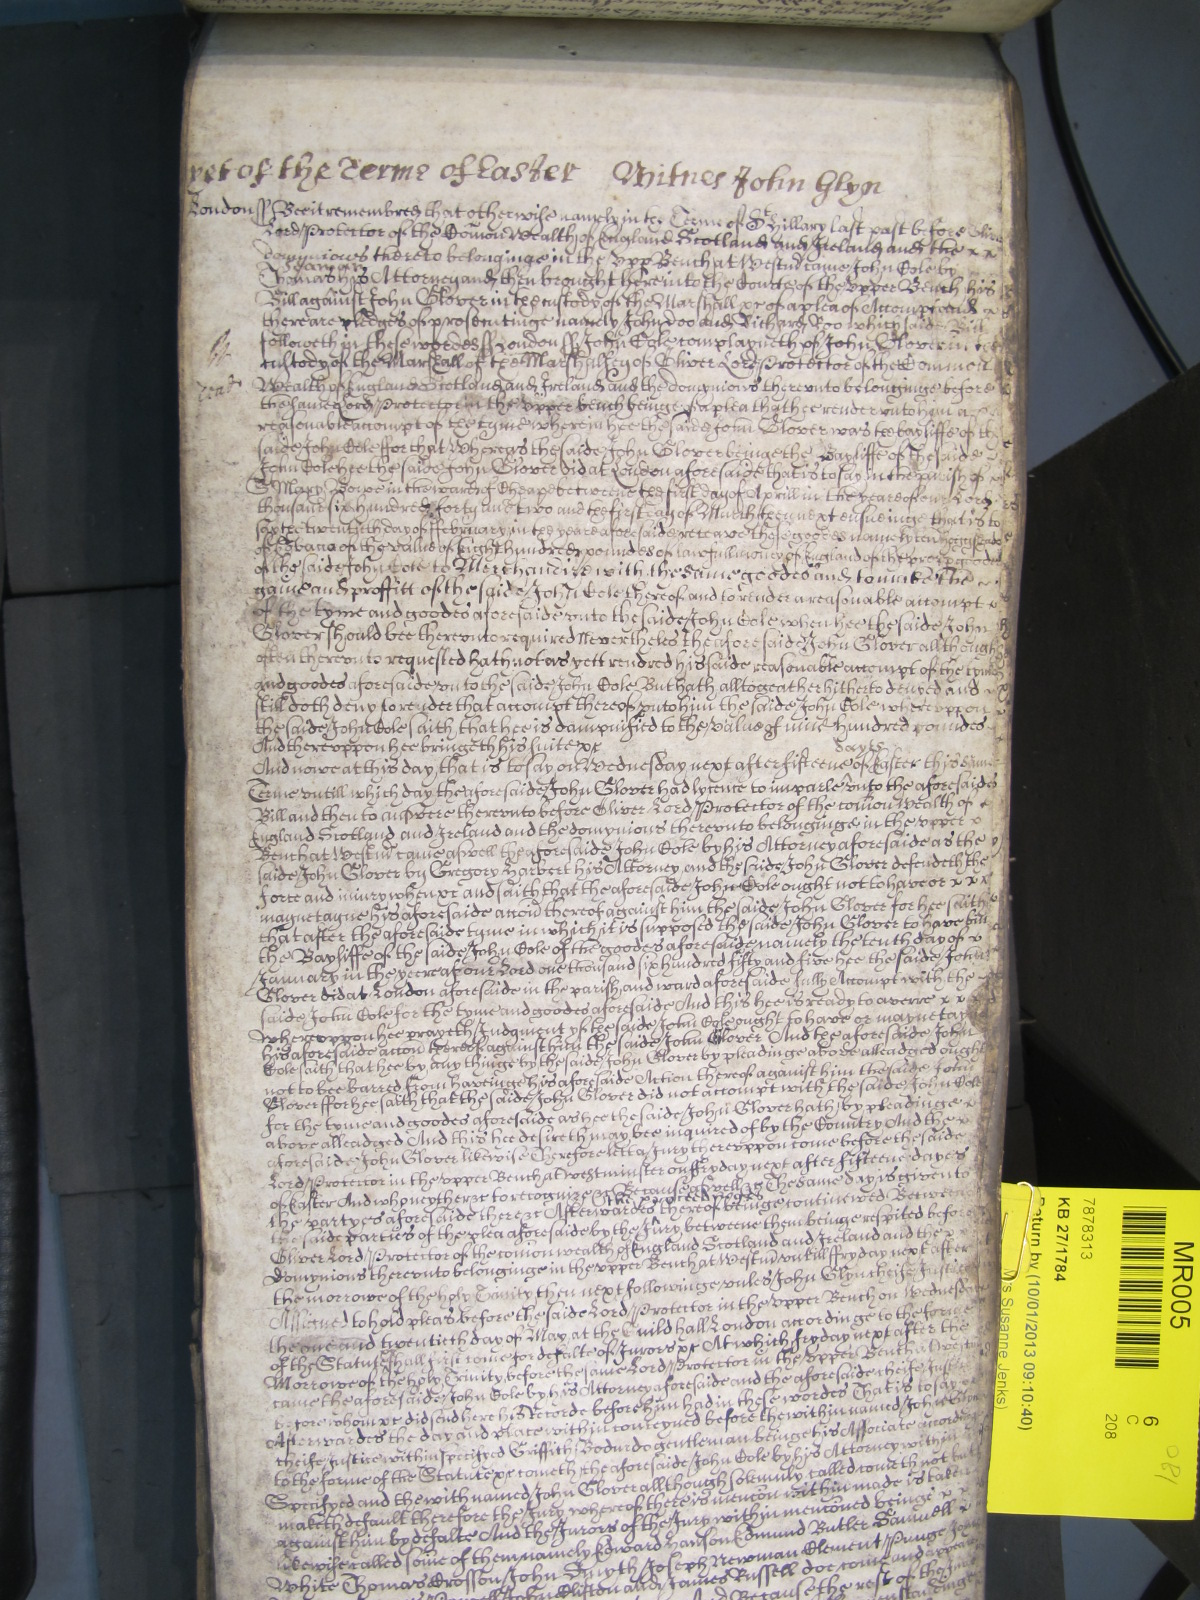 yet of the Terme of Easter Witnes John Glyn
London ss Bee it remembred that otherwise namely in the Terme of St Hillary last past before
Lord Protector of the Comon Wealth of England Scotland and Ireland and the x x
dominions thereto belonginge in the upp Bench at Westm came John Cole by
Thomas his Attorney and then brought here into the Courte of the upper Bench his
Bill against John Glover in the custody of the Marshall xc of a plea of Accompt and
there are pledges of prosecutinge namely John Doo and Richard Roo which saide Bill
followeth in these wordes ss London ss John Cole complayneth of John Glover in the
custody of the Marshall of the Marshallsey of Oliver Lord Protector of the Common
Wealth of England Scotland and Ireland and the dominions thereunto belonginge before
the same Lord Protector in the upper bench beinge of a plea that hee render unto him a
reasonable accompt of the tyme wherein hee the saide John Glover was the bayliffe of the
saide John Cole ffor that Whereas the saide John Glover beinge the Bayliffe of the saide
John Cole hee the saide John Glover did at London aforesaide that is to say in the parish of
St Mary Bowe in the ward of Cheape betweene the first day of Aprill in the yeare of our Lord
thousand six hundred forty and two and the first day of March then next ensueinge that is to
say the twentith day of February in the yeare aforesaide receave these goodes namely ten hoggsheads
of Tobacco of the value of Eight hundred poundes of lawfull money of England of the proper goodes
of the saide John Cole to Merchandize with the same goodes and to make the
gaine and proffitt of the saide John Cole thereof and to render a reasonable accompt x
of the tyme and goodes aforesaide unto the saide John Cole when hee the saide John
Glover should bee thereunto required Nevertheles the aforesaide John Glover although
often thereunto requested hath not as yett rendred his saide reasonable accompt of the tyme
and goodes aforesaide unto the saide John Cole But hath alltogeather hitherto denyed and
still doth deny to render that accompt thereof unto him the saide John Cole whereuppon
the saide John Cole saith that hee is dampnified to the value of nine hundred poundes
And thereuppon hee bringeth his suite xc
dayes
And nowe at this day that is to say on Wednesday next after fifteene of Easter this same
Terme untill which day the aforesaide John Glover had lycence to imparle unto the aforesaide
Bill and then to answere thereunto before Oliver Lord Protector of the comon Wealth of x
England Scotland and Ireland and the dominyons thereunto belonginge in the upper x
Bench at Westm came aswell the aforesaide John Cole by his Attorney aforesaide as the
saide John Glover by Gregory Harbert his Attorney and the saide John Glover defendeth the
force and iniury when xc and saith that the aforesaide John Cole ought not to have or x x x
mayntayne his aforesaide accon thereof against him the saide John Glover for hee saith
that after the aforesaide tyme in which it is supposed the saide John Glover to have bin
the Bayliffe of the saide John Cole of the goodes aforesaide namely the tenth day of
January in the yeere of our Lord one thousand six hundred fifty and five hee the saide John
Glover did at London aforesaide in the parish and ward aforesaide fully Accompt with the
saide John Cole for the tyme and goodes aforesaide And this hee is ready to averre x x
whereuppon hee prayeth Iudgment yf the saide John Cole ought to have or mayntayne
his aforesaide accon thereof against him the saide John Glover And the aforesaide John
Cole saith that hee by any thinge by the saide John Glover by pleadinge above alleadged ought
not to bee barred from haveinge his aforesaide Action thereof against him the saide John
Glover ffor hee saith that the saide John Glover did not accompt with the saide John Cole
for the tyme and goodes aforesaide as hee the saide John Glover hath by pleadinge
above alleadged And this hee desireth may bee inquired of by the Country And the
aforesaide John Glover likewise Therefore lett a Jury thereuppon come before the saide
Lord Protector in the upper Bench at Westminster on ffryday next after fifteene dayes
of Easter And who neyther xc to recognize xc Because aswell xc The same day is given to
the partyes aforesaide there xc Afterwardes the proces thereof beinge continewed Betweene
the saide parties of the plea aforesaide by the Jury betweene them beinge respited before
Oliver Lord Protector of the comon wealth of England Scotland and Ireland and the
dominyons thereunto belonginge in the upper Bench at Westm untill ffryday next after
the morrowe of the holy Trinity then next followinge unles John Glyn cheife Justice
Assigned to hold pleas before the saide Lord Protector in the upper Bench on Wednesday
the one and twentieth day of May at the Guildhall London accordinge to the forme
of the Statute shall first come for defalte of Jurors xc At which ffryday next after the
Morrowe of the holy Trinity before the same Lord Protector in the upper Bench at Westm
came the aforesaide John Cole by his Attorney aforesaide and the aforesaide cheife Justice
before whom xc did send here his Recorde before him had in these wordes That is to say
Afterwardes the day and place within conteyned before the within named John Glyn
cheife Justice within specifyed Griffith Bodurdo gentleman beinge his Associate accordinge
to the forme of the Statute xc cometh the aforesaide John Cole by his Attorney within
Specifyed and the within named John Glover allthough solemnly called cometh not but
maketh default therefore the Jury whereof there is mencon within made is taken
against him by default And the Jurors of the Jury within mencoed beinge x x
likewise called some of them namely Edward Hanson Edmund Butler Samuell
White Thomas Crosson John Smyth Joseph Newman Clement Punge John
John Clifton and James Russell doe come and appeare
And Because the rest of the Jurors
MR005
6
C
208
7878313
KB 27/1784
Return by (10/01/2013 09:10:40)
Mrs Susanne Jenks)